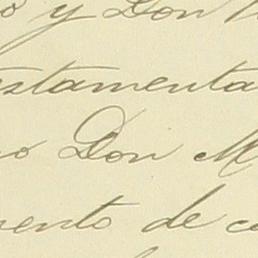 o y Don
estamenta
no Don M
ento de c